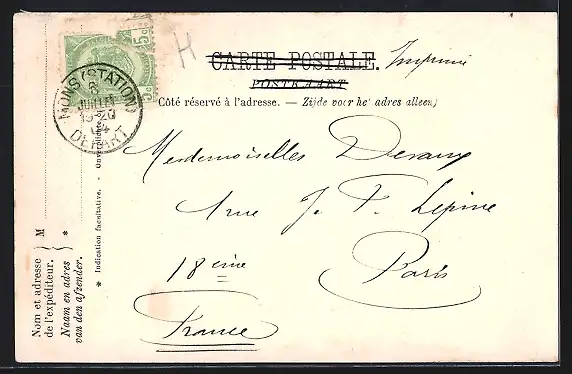 5c
5c
H
MONS (STATION)
6
JUILLET
19-20
04
DEPART
CARTE POSTALE.
Imprimé
POSTKAART
Côté réservé à l'adresse. — Zijde voor het adres alleen)
Mesdemoiselles
1 rue J. F. Lépine
18 eme Paris
France
Nom et adresse
de l'expéditeur.
Naam en adres
van den afzender.
M
*
* Indication facultative. -